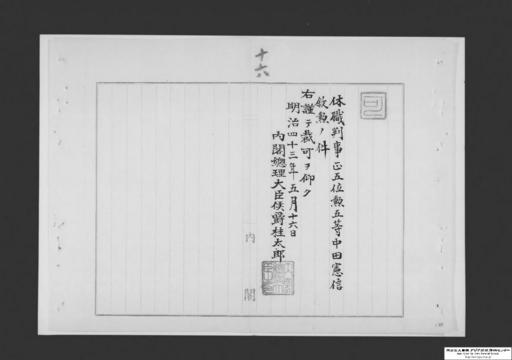 十六
休職判事正五位勲五等中田憲信
叙勲ノ件
右謹テ裁可ヲ仰ク
明治四十三年五月十六日
内閣総理大臣侯爵桂太郎
内閣